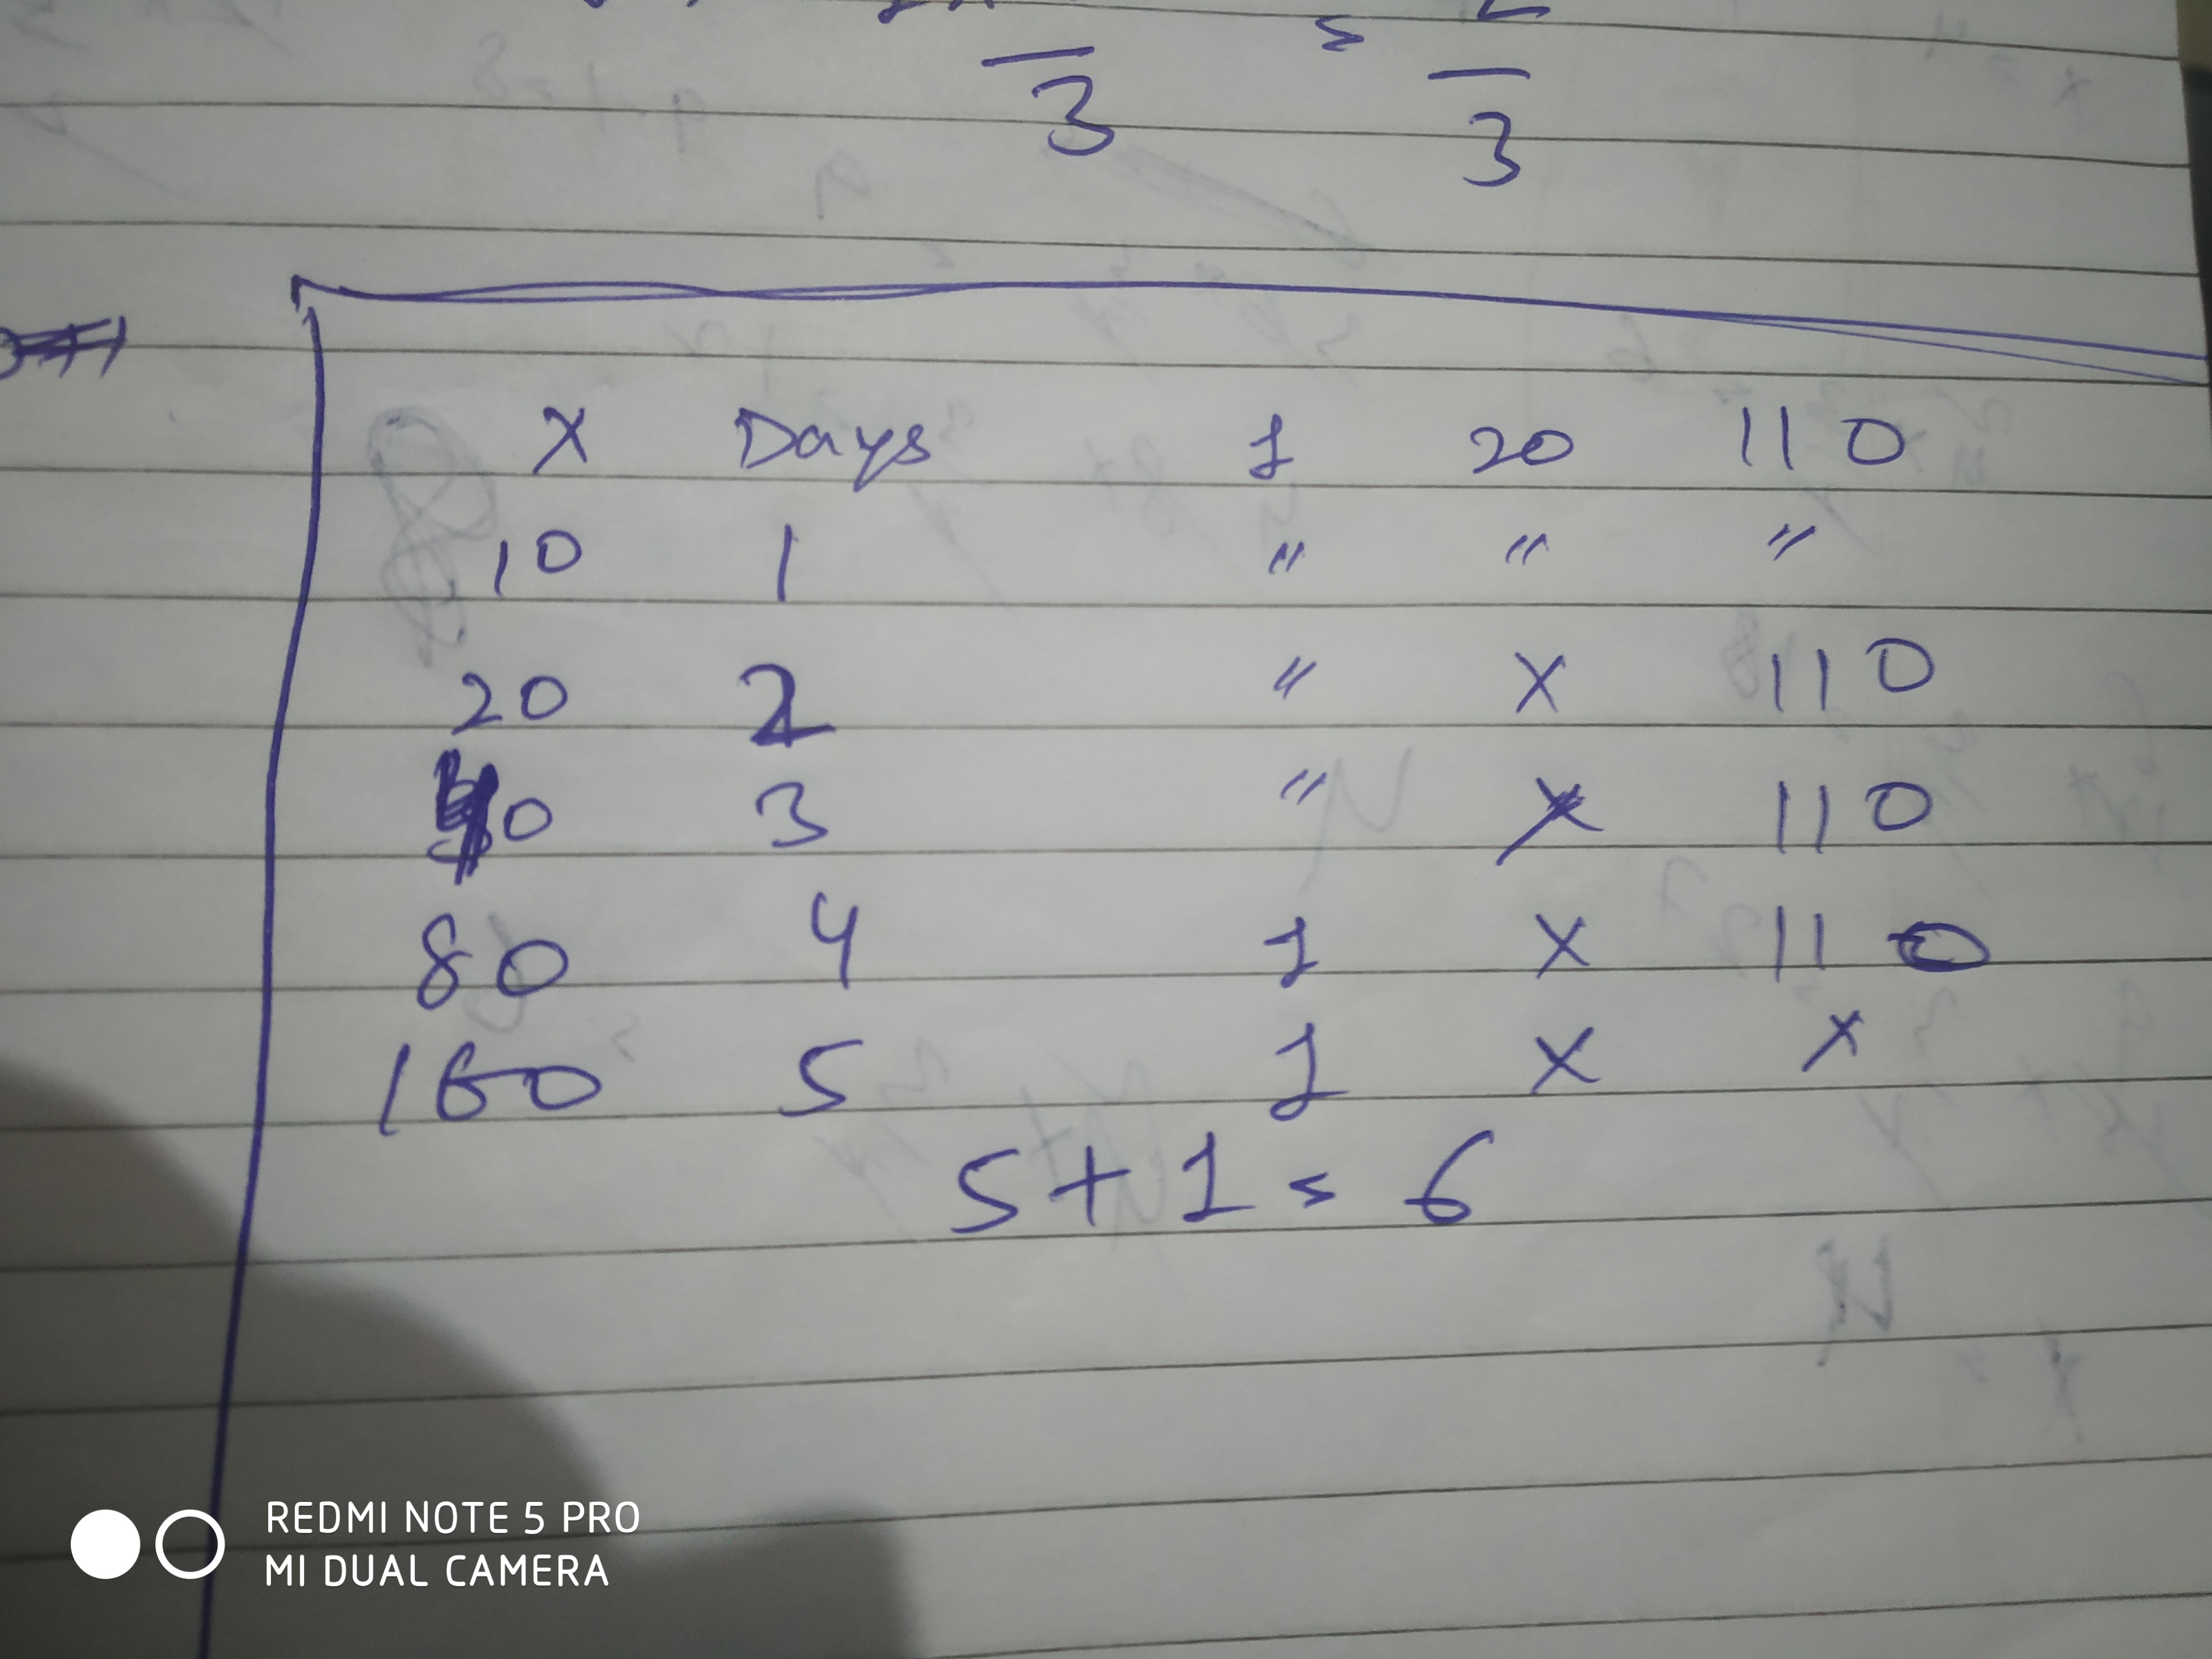 3 3
X Days 1 20 110
10 1 " " "
20 2 " X 110
0 3 " X 110
80 4 1 X 110
160 5 1 X X
5 + 1 = 6
REDMI NOTE 5 PRO
MI DUAL CAMERA